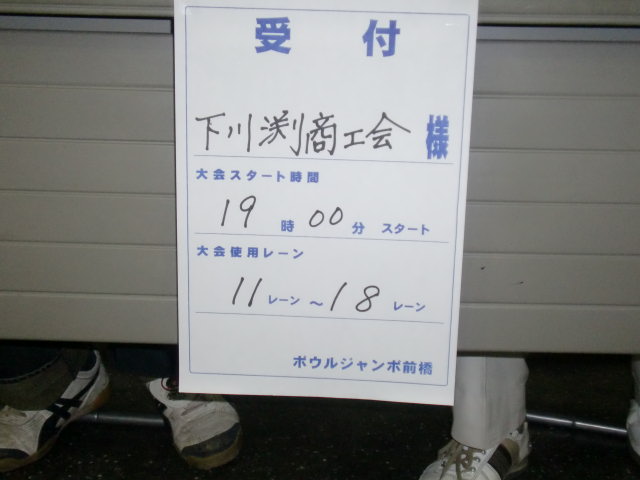 受付
下川渕商工会 様
大会スタート時間
19時00分 スタート
大会使用レーン
11レーン～18レーン
ボウルジャンボ前橋